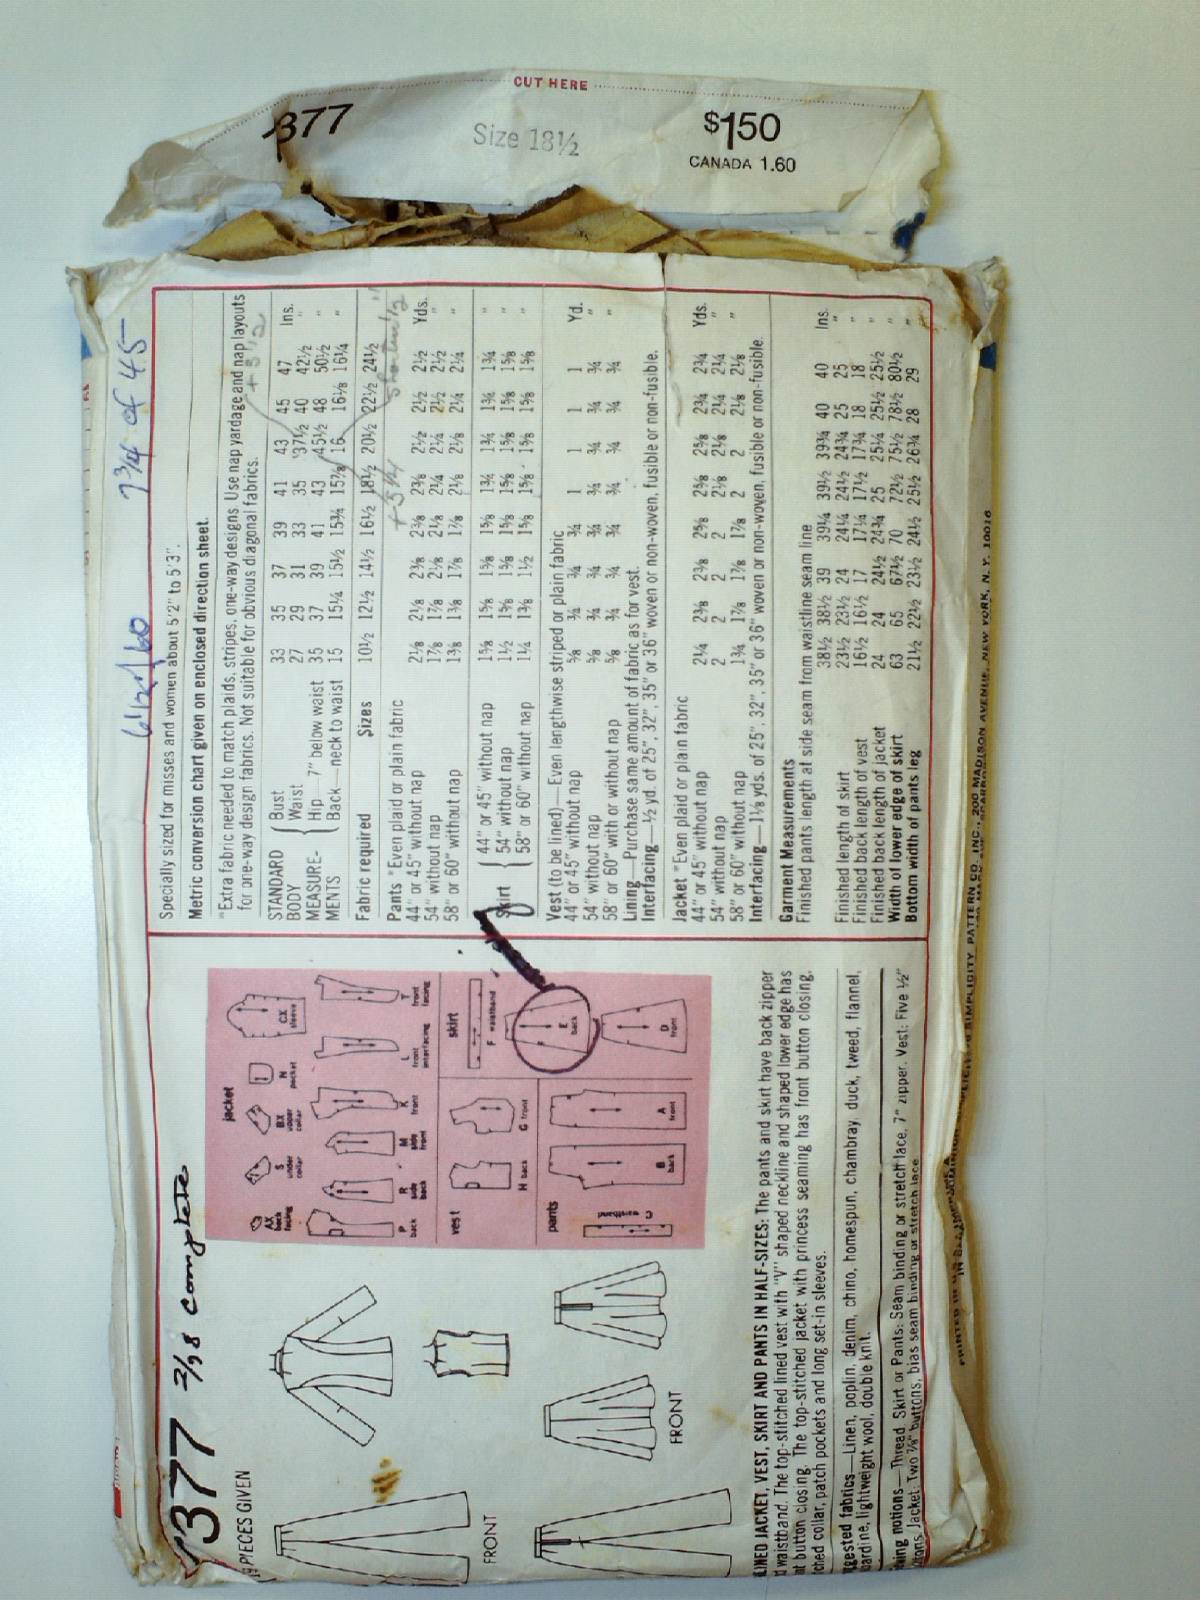 CUT HERE
377
Size 18½
$1.50
CANADA 1.60
6½/60 7¾ of 45
Specially sized for misses and women about 5'2" to 5'3".
Metric conversion chart given on enclosed direction sheet.
*Extra fabric needed to match plaids, stripes, one-way designs. Use nap yardage and nap layouts
for one-way design fabrics. Not suitable for obvious diagonal fabrics.
+3½
STANDARD Bust 33 35 37 39 41 43 45 47 Ins.
BODY Waist 27 29 31 33 35 37½ 40 42½ "
MEASURE- Hip—7" below waist 35 37 39 41 43 45½ 48 50½ "
MENTS Back—neck to waist 15 15¼ 15½ 15¾ 15⅞ 16 16⅛ 16¼ "
Fabric required Sizes 10½ 12½ 14½ 16½ 18½ 20½ 22½ 24½
+5¼ shorten 1½"
Pants *Even plaid or plain fabric
44" or 45" without nap 2⅛ 2⅛ 2⅜ 2⅜ 2⅜ 2½ 2½ 2½ Yds.
54" without nap 1⅞ 1⅞ 2⅛ 2⅛ 2¼ 2¼ 2½ 2½ "
58" or 60" without nap 1⅜ 1⅜ 1⅞ 1⅞ 2⅛ 2⅛ 2¼ 2¼ "
Skirt 44" or 45" without nap 1⅝ 1⅝ 1⅝ 1⅝ 1¾ 1¾ 1¾ 1¾ "
54" without nap 1½ 1⅝ 1⅝ 1⅝ 1⅝ 1⅝ 1⅝ 1⅝ "
58" or 60" without nap 1¼ 1⅜ 1½ 1⅝ 1⅝ 1⅝ 1⅝ 1⅝ "
Vest (to be lined)—Even lengthwise striped or plain fabric
44" or 45" without nap ⅝ ¾ ¾ ¾ 1 1 1 1 Yd.
54" without nap ⅝ ¾ ¾ ¾ ¾ ¾ ¾ ¾ "
58" or 60" with or without nap ⅝ ¾ ¾ ¾ ¾ ¾ ¾ ¾ "
Lining—Purchase same amount of fabric as for vest.
Interfacing—½ yd. of 25", 32", 35" or 36" woven or non-woven, fusible or non-fusible.
Jacket *Even plaid or plain fabric
44" or 45" without nap 2¼ 2⅜ 2⅜ 2⅝ 2⅝ 2⅝ 2¾ 2¾ Yds.
54" without nap 2 2 2 2 2⅛ 2⅛ 2¼ 2¼ "
58" or 60" without nap 1¾ 1⅞ 1⅞ 1⅞ 2 2 2⅛ 2⅛ "
Interfacing—1⅛ yds. of 25", 32", 35" or 36" woven or non-woven, fusible or non-fusible.
Garment Measurements
Finished pants length at side seam from waistline seam line
38½ 38½ 39 39¼ 39½ 39¾ 40 40 Ins.
Finished length of skirt 23½ 23½ 24 24¼ 24½ 24¾ 25 25 "
Finished back length of vest 16½ 16½ 17 17¼ 17½ 17¾ 18 18 "
Finished back length of jacket 24 24 24½ 24¾ 25 25¼ 25½ 25½ "
Width of lower edge of skirt 63 65 67½ 70 72½ 75½ 78½ 80½ "
Bottom width of pants leg 21½ 22½ 23½ 24½ 25½ 26¾ 28 29 "
377 2/98 complete
19 PIECES GIVEN
FRONT
FRONT
FRONT
jacket
AX back facing
S under collar
BX upper collar
N pocket
CX sleeve
P back
R side back
M side front
K front
L front interfacing
T front facing
vest
H back
G front
skirt
F waistband
E back
D front
pants
C waistband
B back
A front
LINED JACKET, VEST, SKIRT AND PANTS IN HALF-SIZES: The pants and skirt have back zipper
d waistband. The top-stitched lined vest with "V" shaped neckline and shaped lower edge has
nt button closing. The top-stitched jacket with princess seaming has front button closing,
tched collar, patch pockets and long set-in sleeves.
ggested fabrics—Linen, poplin, denim, chino, homespun, chambray, duck, tweed, flannel,
bardine, lightweight wool, double knit.
wing notions—Thread. Skirt or Pants: Seam binding or stretch lace, 7" zipper. Vest: Five ½"
ttons. Jacket: Two ⅞" buttons, bias seam binding or stretch lace.
SIMPLICITY PATTERN CO. INC., 200 MADISON AVENUE, NEW YORK, N.Y. 10016
PRINTED IN U.S.A.